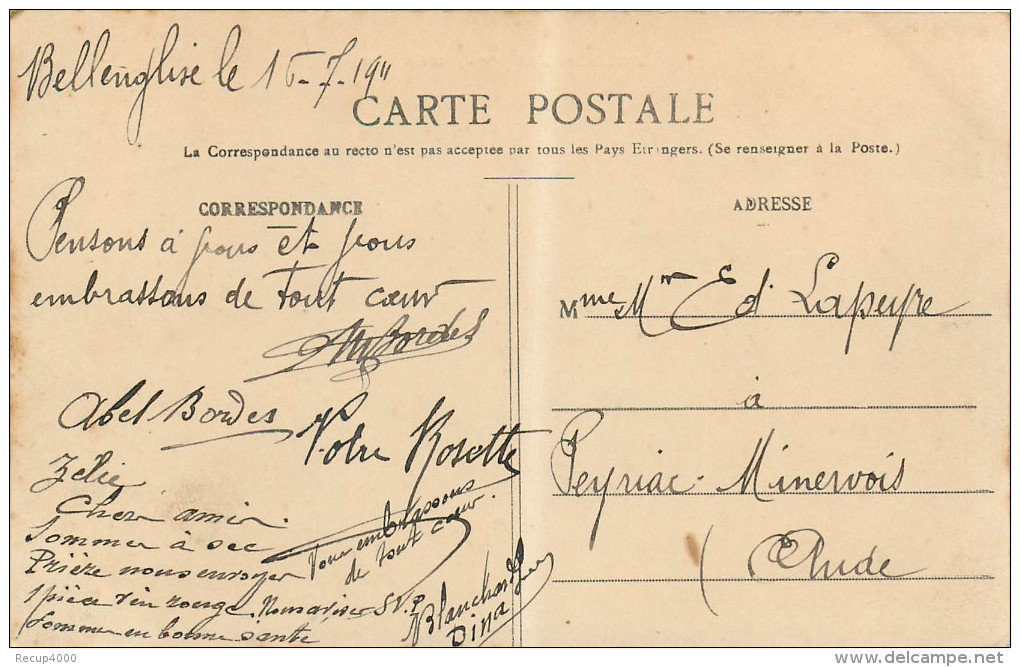 Bellenglise le 16-7-1911
CARTE POSTALE
La Correspondance au recto n'est pas acceptée par tous les Pays Etrangers. (Se renseigner à la Poste.)
CORRESPONDANCE
Pensons à vous et vous
embrassons de tout cœur
Bordes
Abel Bordes
Votre Rosette
Zélie
Cher amis.
Sommes à sec
Prière nous envoyer
1 pièce vin rouge. Nous aviser S.V.P
Sommes en bonne santé
Vous embrassons
de tout cœur.
Blanchard
Dina
ADRESSE
Mme Mr Ed Lapeyre
à
Peyriac-Minervois
(Aude
Recup4000
www.delcampe.net